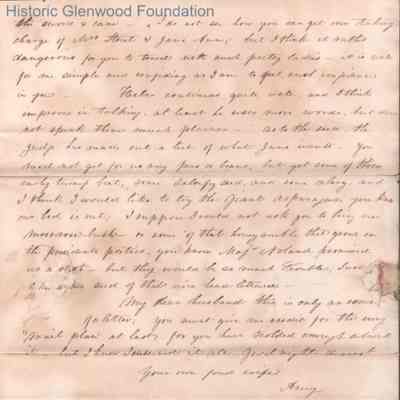 Historic Glenwood Foundation
the                      I do not see how you can get out taking
charge of Mrs Hunt & Jane Anne, but I think it rather
dangerous for you to travel with such pretty ladies — it is well
for me simple and confiding as I am to feel such confidence
in you —         continues quite well and I think
improves in talking, at least he uses more words, but does
not speak them much plainer — as to the seed the
Judge has made out a list of what Jane wants — You
need not get for us any peas or beans, but get some of those
early turnip beet, some Salsify seed, and some celery, and
I think I would like to try the Giant Asparagus, you know
our bed is out, I suppose I could not ask you to buy me a
                    or some of that honeysuckle that grows on
the presidents portico, you know Majr Noland promised
us a slip — but they would be so much trouble,
                   seed of that nice head lettuce —
My dear husband this is only an
for a letter, you must give me credit for the very
small place at last, for you have scolded enough about
it — but I                it all. Good night dearest
Your own fond wife
Amy